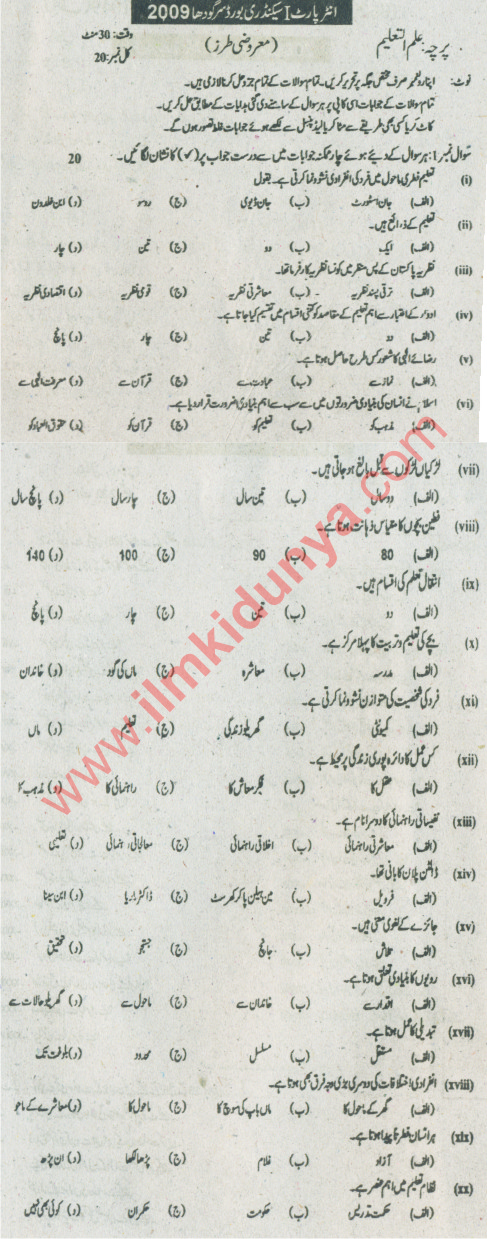 انٹر پارٹ I سیکنڈری بورڈ سرگودھا 2009
پرچہ: علم التعلیم (معروضی طرز) وقت: 30 منٹ
کل نمبر: 20
نوٹ: اپنا رول نمبر صرف مختص جگہ پر تحریر کریں۔ تمام سوالات کے تمام جزو حل کرنا لازمی ہیں۔
تمام سوالات کے جوابات اسی کاپی پر ہر سوال کے سامنے دی گئی ہدایات کے مطابق حل کریں۔
کاٹ کر یا کسی بھی طریقے سے مٹا کر یا لیڈ پنسل سے لکھے ہوئے جوابات غلط تصور ہوں گے۔
سوال نمبر 1: ہر سوال کے دیئے ہوئے چار ممکنہ جوابات میں سے درست جواب پر (✓) کا نشان لگائیں۔ 20
(i) تعلیم فطری ماحول میں فرد کی انفرادی نشوونما کرتی ہے۔ بقول
(الف) جان اسٹورٹ (ب) جان ڈیوی (ج) روسو (د) ابن خلدون
(ii) تعلیم کے ذرائع ہیں۔
(الف) ایک (ب) دو (ج) تین (د) چار
(iii) نظریہ پاکستان کے پس منظر میں کونسا نظریہ کارفرما تھا۔
(الف) ترقی پسند نظریہ (ب) معاشرتی نظریہ (ج) قومی نظریہ (د) اقتصادی نظریہ
(iv) ادوار کے اعتبار سے اہم تعلیم کے مقاصد کو کتنی اقسام میں تقسیم کیا جاتا ہے۔
(الف) دو (ب) تین (ج) چار (د) پانچ
(v) رضائے الٰہی کا شعور کس طرح حاصل ہوتا ہے۔
(الف) نماز سے (ب) عبادت سے (ج) قرآن سے (د) معرفت الٰہی سے
(vi) اسلام نے انسان کی بنیادی ضرورتوں میں سے سب سے اہم بنیادی ضرورت قرار دیا ہے۔
(الف) مذہب کو (ب) تعلیم کو (ج) قرآن کو (د) حقوق العباد کو
(vii) لڑکیاں لڑکوں سے قبل بالغ ہو جاتی ہیں۔
(الف) دو سال (ب) تین سال (ج) چار سال (د) پانچ سال
(viii) فطین بچوں کا مقیاس ذہانت ہوتا ہے۔
(الف) 80 (ب) 90 (ج) 100 (د) 140
(ix) انتقال تعلم کی اقسام ہیں۔
(الف) دو (ب) تین (ج) چار (د) پانچ
(x) بچے کی تعلیم و تربیت کا پہلا مرکز ہے۔
(الف) مدرسہ (ب) معاشرہ (ج) ماں کی گود (د) خاندان
(xi) فرد کی شخصیت کی متوازن نشوونما کرتی ہے۔
(الف) کمیونٹی (ب) گھریلو زندگی (ج) تعلیم (د) ماں
(xii) کس عمل کا دائرہ پوری زندگی پر محیط ہے۔
(الف) عقل کا (ب) فکر معاش کا (ج) راہنمائی کا (د) مذہب کا
(xiii) نفسیاتی راہنمائی کا دوسرا نام ہے۔
(الف) معاشرتی راہنمائی (ب) اخلاقی راہنمائی (ج) معالجاتی راہنمائی (د) تعلیمی
(xiv) ڈالٹن پلان کا بانی تھا۔
(الف) فروبل (ب) مس ہیلن پارکھرسٹ (ج) ڈاکٹر ماریا (د) ابن سینا
(xv) جائزے کے لغوی معنی ہیں۔
(الف) تلاش (ب) جانچ (ج) جستجو (د) تحقیق
(xvi) رویوں کا بنیادی تعلق ہوتا ہے۔
(الف) اقدار سے (ب) خاندان سے (ج) ماحول سے (د) گھریلو حالات سے
(xvii) تبدیلی کا عمل ہوتا ہے۔
(الف) مستقل (ب) مسلسل (ج) محدود (د) بلوغت تک
(xviii) انفرادی اختلافات کی دوسری بڑی وجہ فرق بھی ہوتا ہے۔
(الف) گھر کے ماحول کا (ب) ماں باپ کی سوچ کا (ج) ماحول کا (د) معاشرے کے ماحو
(xix) ہر انسان فطرتاً پیدا ہوتا ہے۔
(الف) آزاد (ب) غلام (ج) پڑھا لکھا (د) ان پڑھ
(xx) نظام تعلیم میں اہم عنصر ہے۔
(الف) حکمت تدریس (ب) حکومت (ج) حکمران (د) کوئی بھی نہیں
www.ilmkidunya.com